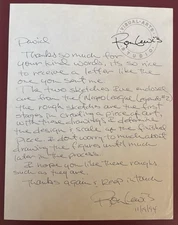 VISUAL ARTS
David
Thanks so much for
your kind words, it's so nice
to receive a letter like the
one you sent me.
The two sketches I've enclosed
are from the
the rough sketches are the first
stages in creating a piece of art,
with these drawings I determine
the design & scale of the finished
piece & don't worry to much about
drawing the figures until much
later in the process.
I hope you like these roughs
such as they are.
Thanks again & keep in touch